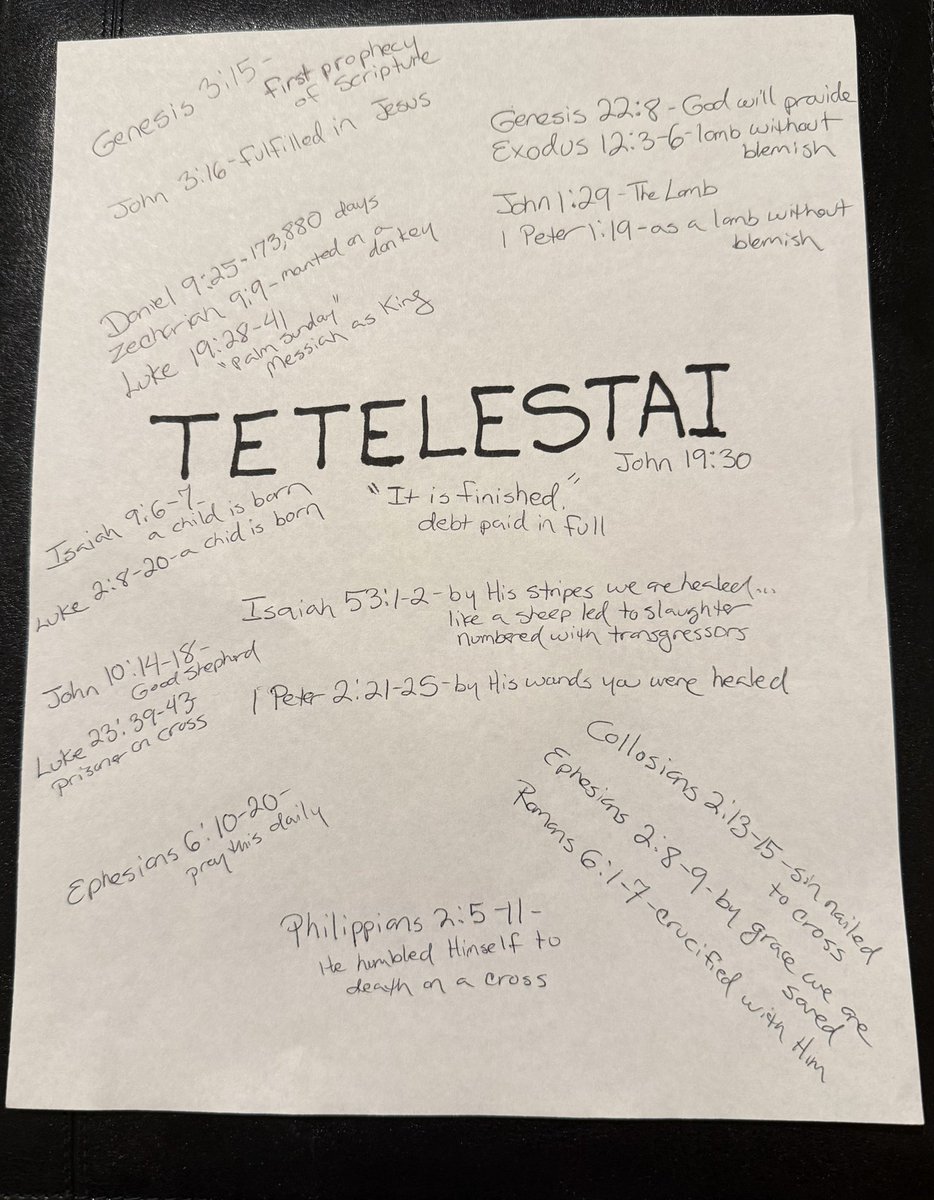 Genesis 3:15-
first prophecy
of Scripture
John 3:16-fulfilled in Jesus
Genesis 22:8-God will provide
Exodus 12:3-6-lamb without
blemish
John 1:29-The Lamb
1 Peter 1:19-as a lamb without
blemish
Daniel 9:25-173,880 days
Zechariah 9:9-manted on a
donkey
Luke 19:28-41
"Palm Sunday"
Messiah as King
TETELESTAI
John 19:30
"It is finished."
debt paid in full
Isaiah 9:6-7-
a child is born
Luke 2:8-20-a chid is born
Isaiah 53:1-2-by His stripes we are healed...
like a sheep led to slaughter
numbered with transgressors
John 10:14-18-
Good Shepherd
Luke 23:39-43
prisoner on cross
1 Peter 2:21-25-by His wands you were healed
Collosians 2:13-15-sin nailed
to cross
Ephesians 2:8-9-by grace we are
saved
Romans 6:1-7-crucified with Him
Ephesians 6:10-20-
pray this daily
Philippians 2:5-11-
He humbled Himself to
death on a cross